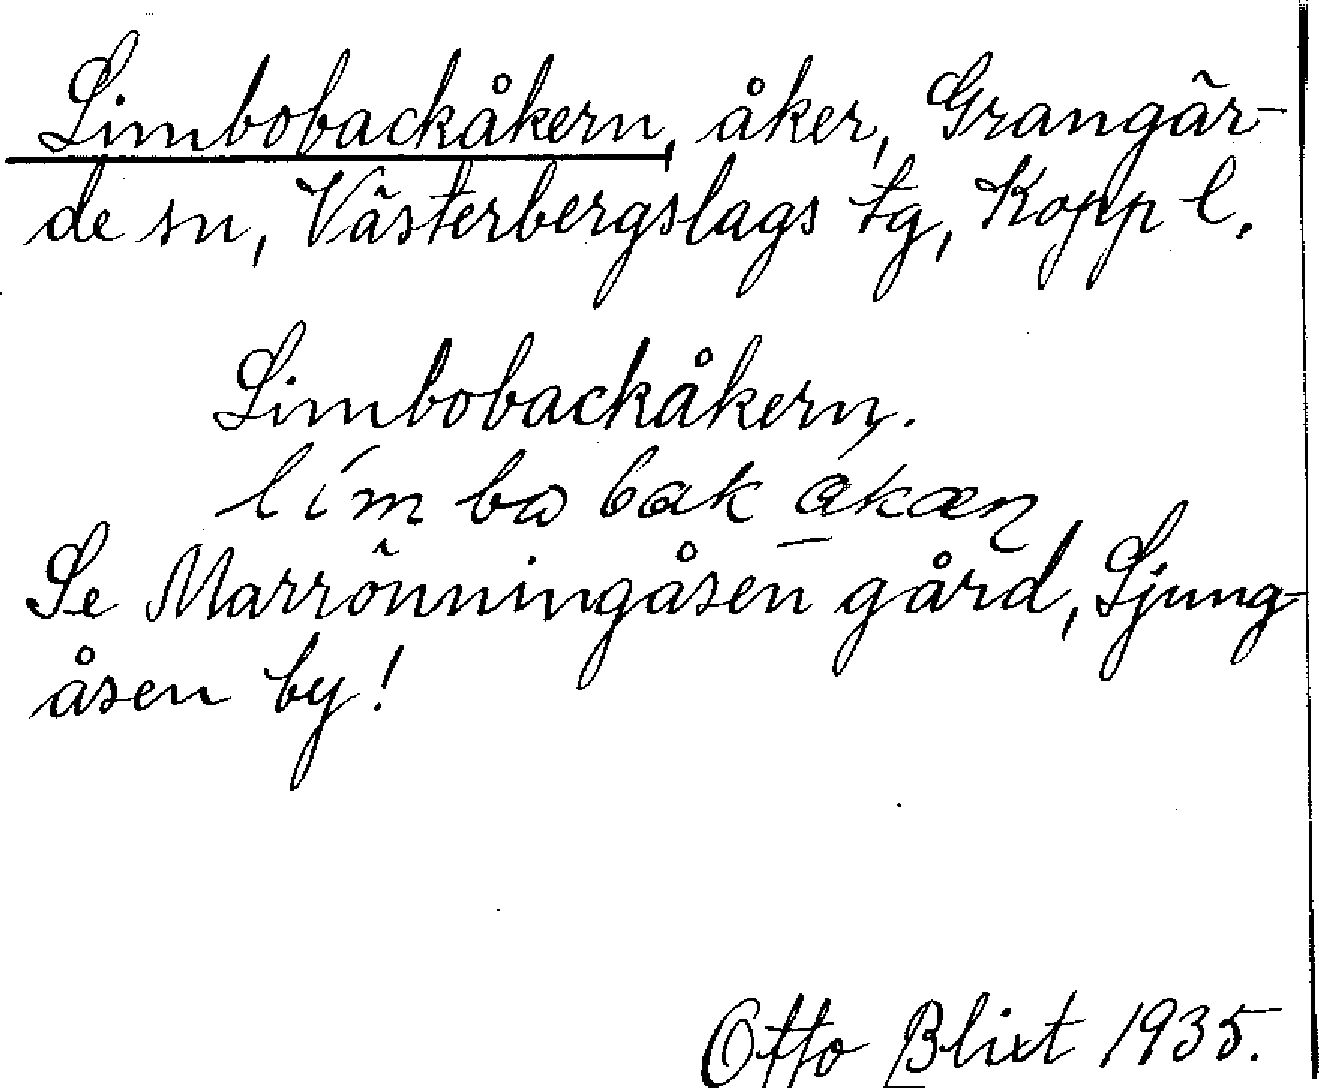 Limbobackåkern, åker, Grangär-
de sn, Västerbergslags tg, Kopp l.
Limbobackåkern.
Se Marrönningåsen gård, Ljung-
åsen by!
Otto Blixt 1935.